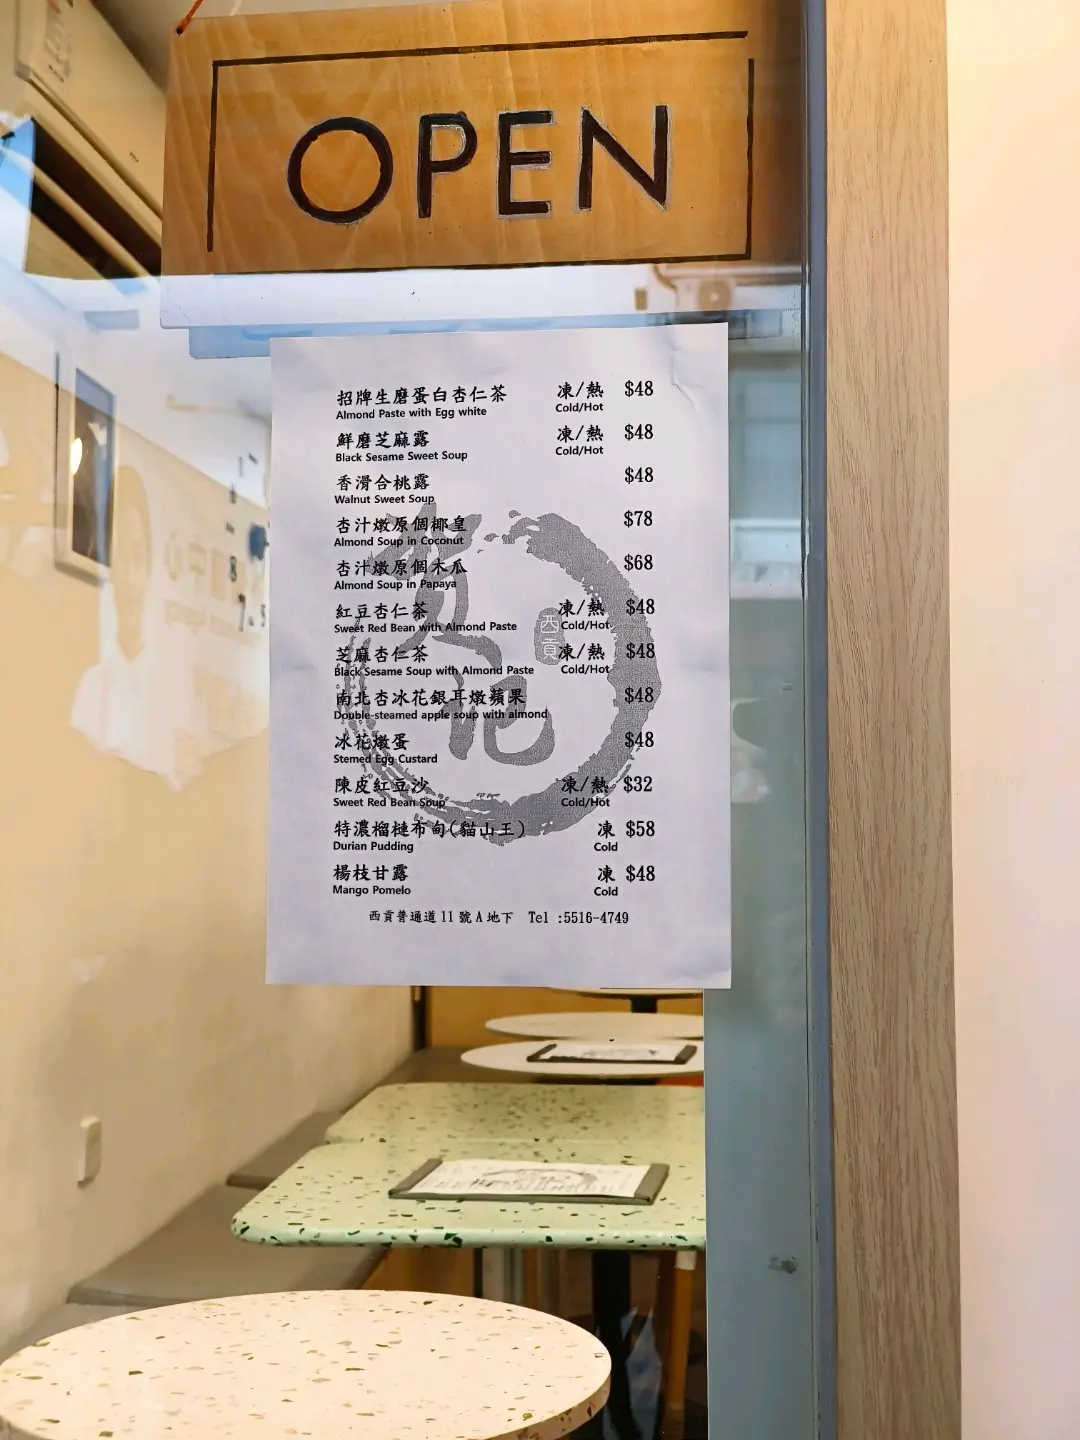 OPEN
招牌生磨蛋白杏仁茶 凍/熱 $48
Almond Paste with Egg white Cold/Hot
鮮磨芝麻露 凍/熱 $48
Black Sesame Sweet Soup Cold/Hot
香滑合桃露 $48
Walnut Sweet Soup
杏汁燉原個椰皇 $78
Almond Soup in Coconut
杏汁燉原個木瓜 $68
Almond Soup in Papaya
紅豆杏仁茶 凍/熱 $48
Sweet Red Bean with Almond Paste Cold/Hot
芝麻杏仁茶 凍/熱 $48
Black Sesame Soup with Almond Paste Cold/Hot
南北杏冰花銀耳燉蘋果 $48
Double-steamed apple soup with almond
冰花燉蛋 $48
Stemed Egg Custard
陳皮紅豆沙 凍/熱 $32
Sweet Red Bean Soup Cold/Hot
特濃榴槤布甸(貓山王) 凍 $58
Durian Pudding Cold
楊枝甘露 凍 $48
Mango Pomelo Cold
西貢普通道11號A地下 Tel :5516-4749
西貢
記